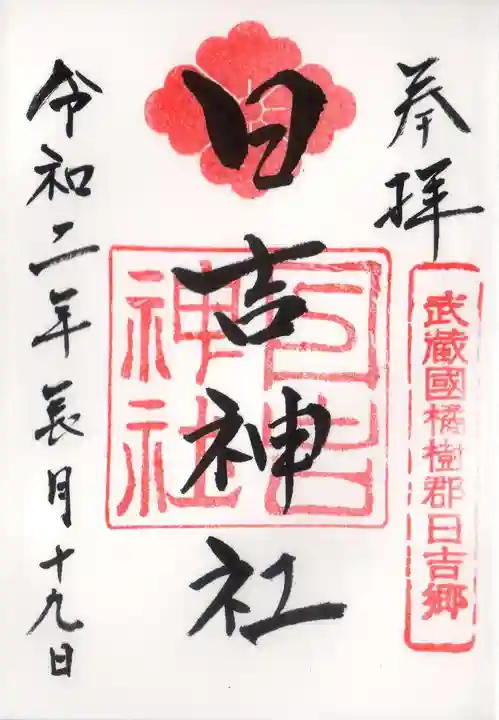 奉拝
武蔵國橘樹郡日吉郷
日吉神社
日吉神社
令和二年長月十九日